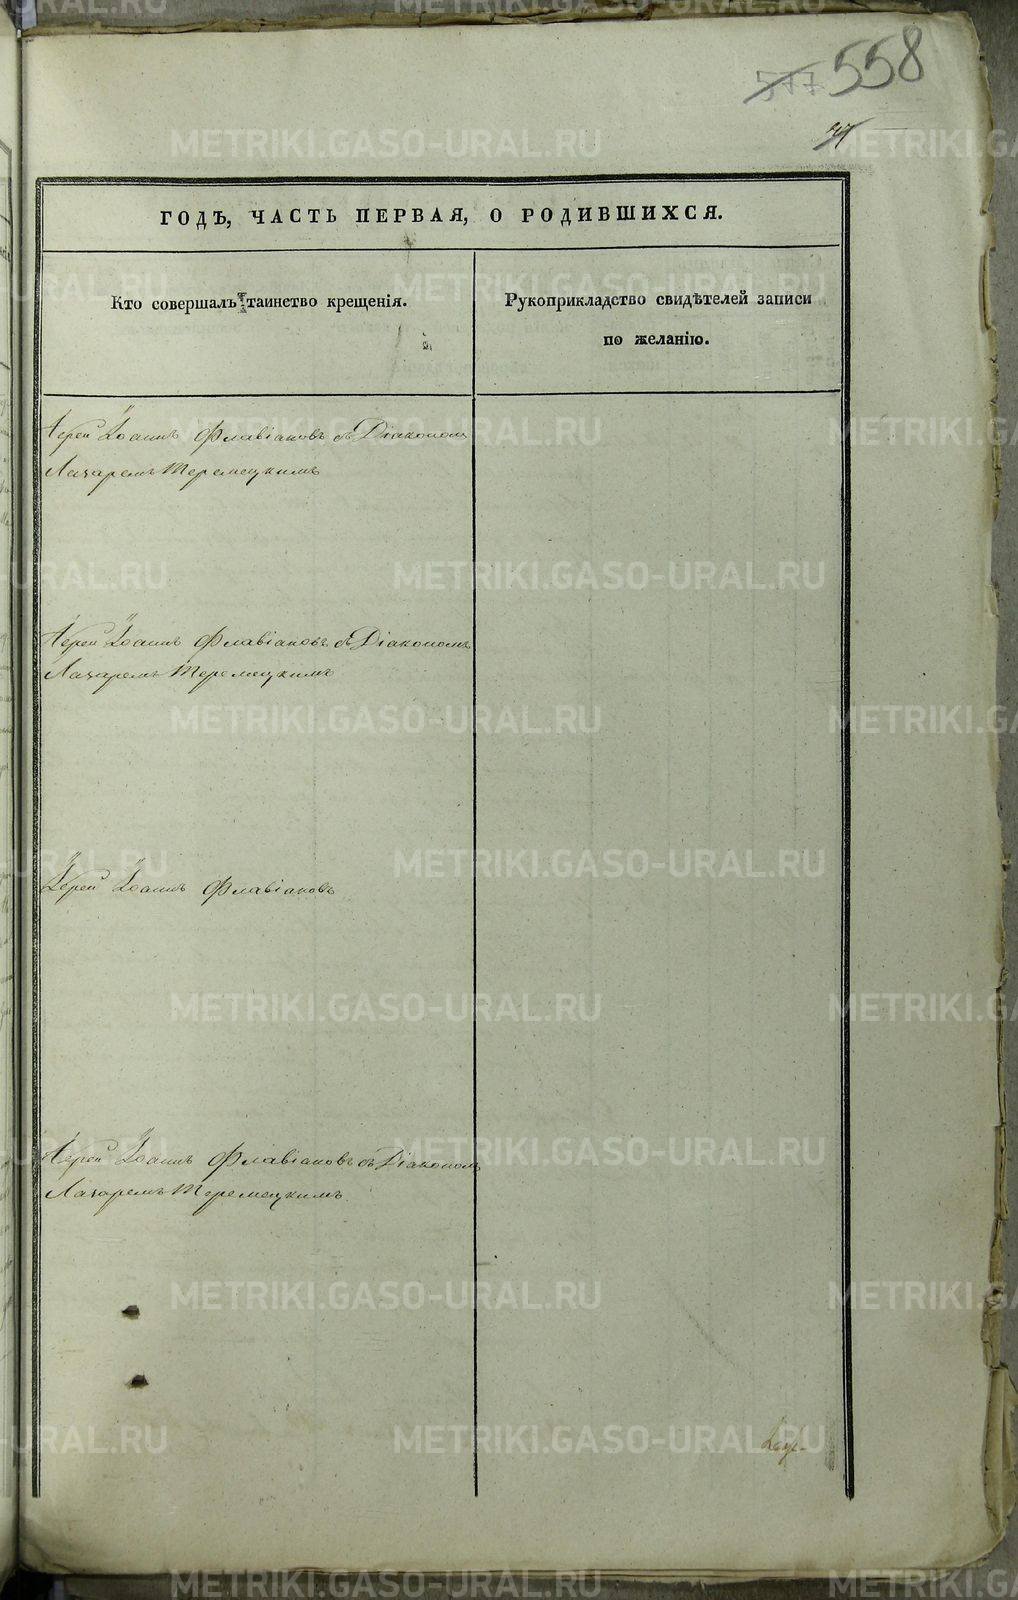 558
577
ГОДЪ, ЧАСТЬ ПЕРВАЯ, О РОДИВШИХСЯ.
Кто совершалъ таинство крещенія.
Рукоприкладство свидѣтелей записи
по желанію.
Іерей Іоаннъ Флавіановъ съ Діакономъ
Лазаремъ Теремецкимъ
Іерей Іоаннъ Флавіановъ съ Діакономъ
Лазаремъ Теремецкимъ
Іерей Іоаннъ Флавіановъ
Іерей Іоаннъ Флавіановъ съ Діакономъ
Лазаремъ Теремецкимъ.
METRIKI.GASO-URAL.RU